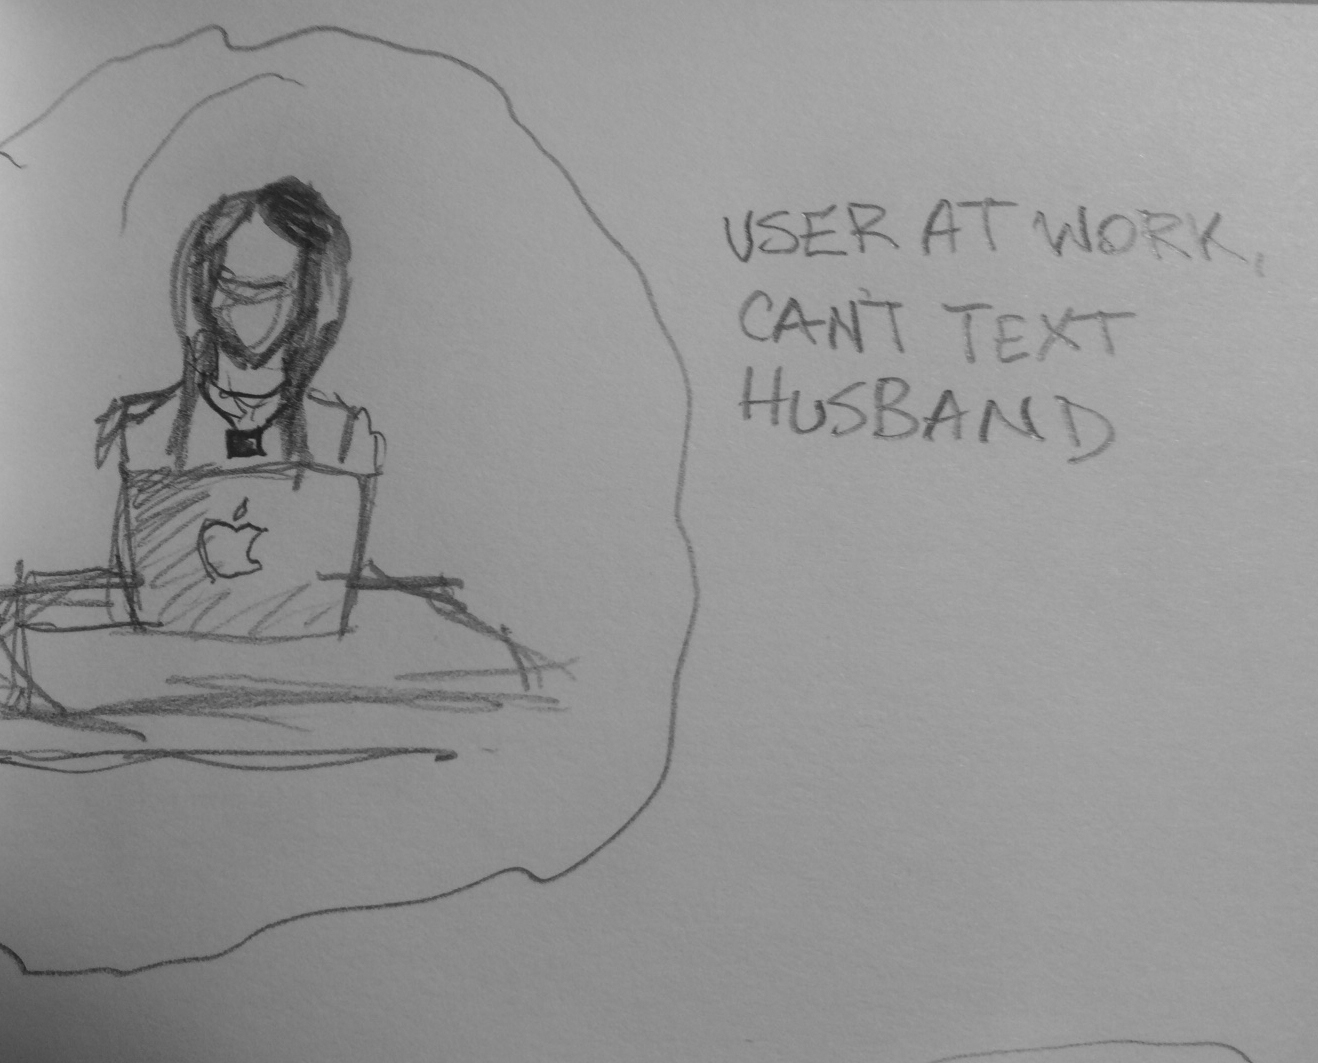 USER AT WORK,
CAN'T TEXT
HUSBAND